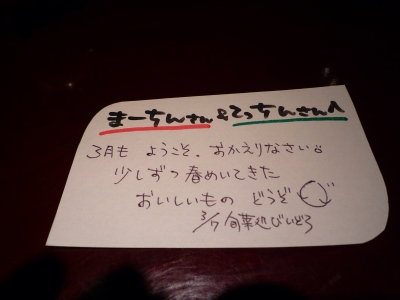 まーちんさん&てっちんさんへ
3月も ようこそ。おかえりなさい
少しずつ春めいてきた
おいしいもの どうぞ
3/7 旬菜 びいどろ